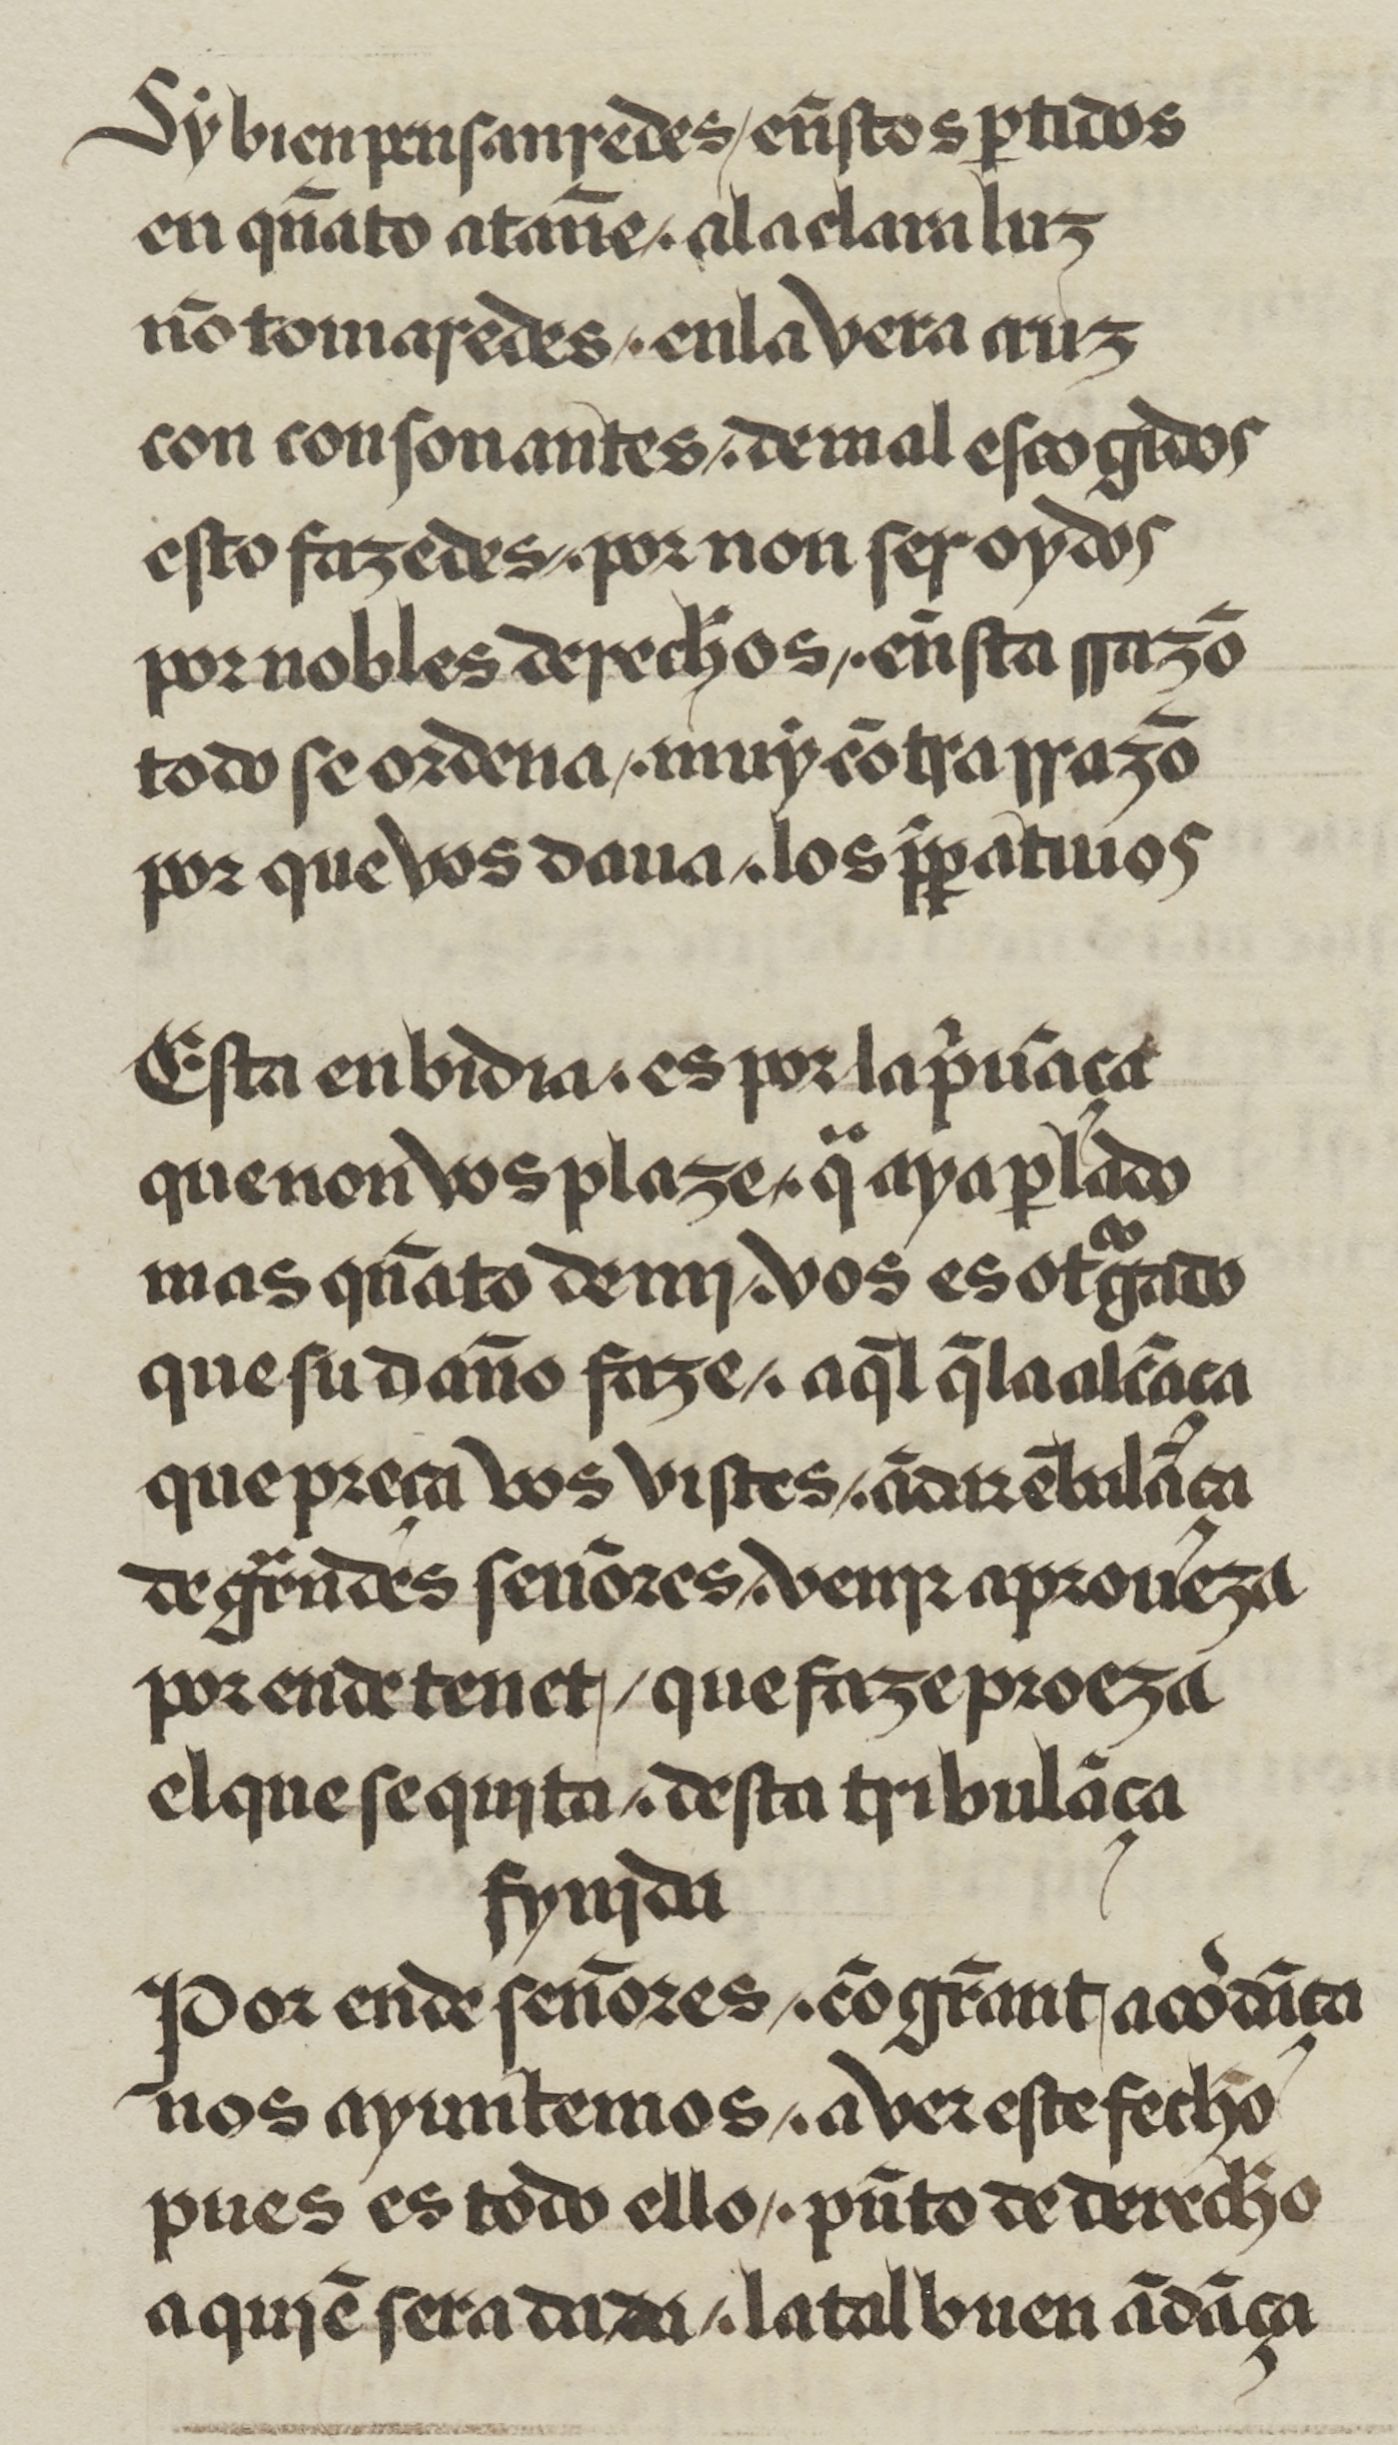 Sy bien pensaredes / eñstos ptidos
en qñato atañe /. ala clara luz
nõ tomaredes /. enla vera cruz
con consonantes /. de mal escogidos
esto fazedes /. por non ser oydos
por nobles derechos /. eñsta rrazõ
todo se ordena /. muy cõtra rrazõ
por que vos daua /. los ippatiuos
Esta enbidia /. es por la p̉uãça
que non vos plaze /. q̈ aya perlado
mas qñato de mj /. vos es otgado
que su daño faze /. aq̃l q̃ la alcãça
que preça vos vistes /. ãdar ẽ bulãça
de grãndes señores /. venjr a proueza
por ende tenet / que faze proeza
el que se quita /. desta tribulãça
fynjda
Por ende señores /. cõ grãnt acordãça
nos ayuntemos /. a ver este fecho
pues es todo ello /. pũto de derecho
a qujẽ sera dada /. la tal buen ãdãça